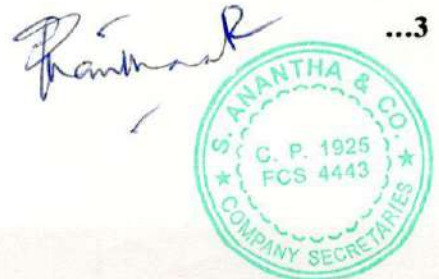 ...3
S. ANANTHA & CO.
C. P. 1925
FCS 4443
COMPANY SECRETARIES